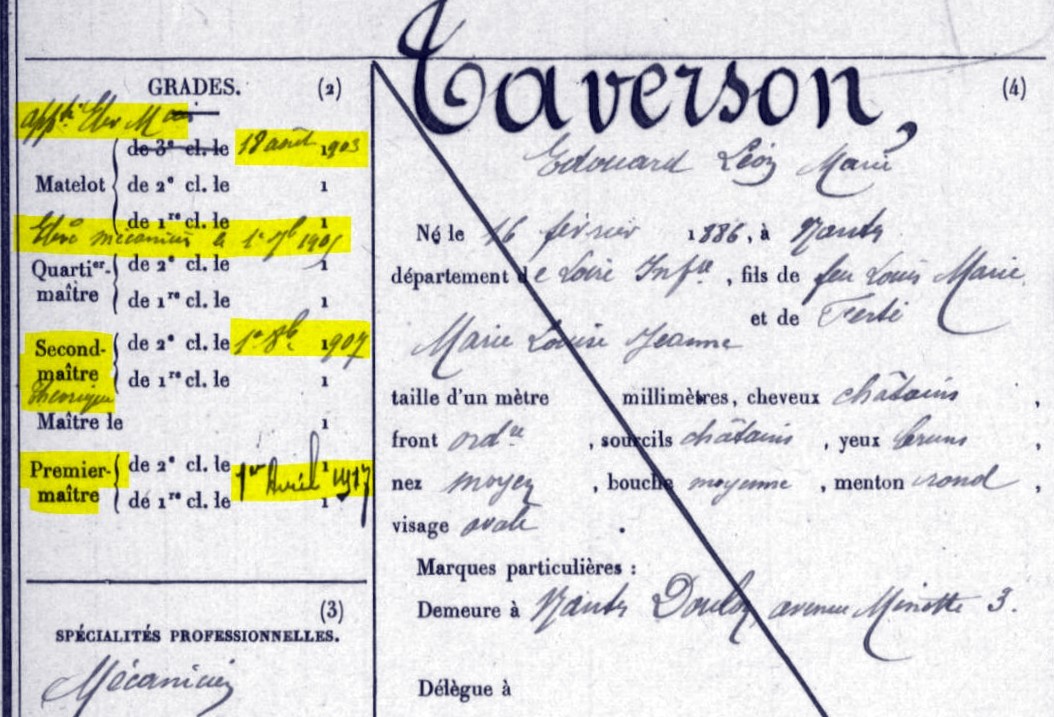 Taverson,
GRADES. (2)
(4)
app.ti Elev Mcien
de 3e cl. le 18 août 1903
Matelot
de 2e cl. le 1
de 1re cl. le 1
Elève mécanicien le 1er 1905
Quartier-maître
de 2e cl. le 1
de 1re cl. le 1
Second-maître
de 2e cl. le 1er 8bre 1907
de 1re cl. le 1
théorique
Maître le 1
Premier-maître
de 2e cl. le 1er Avril 1917
de 1re cl. le 1
(3)
SPÉCIALITÉS PROFESSIONNELLES.
Mécanicien
Edouard Léon Marie
Né le 16 février 1886, à Nantes
département de Loire Infre, fils de feu Louis Marie
et de Ferté
Marie Louise Jeanne
taille d'un mètre millimètres, cheveux châtains,
front ordre, sourcils châtains, yeux bruns,
nez moyen, bouche moyenne, menton rond,
visage ovale.
Marques particulières :
Demeure à Nantes Doulon avenue Minotte 3.
Délègue à